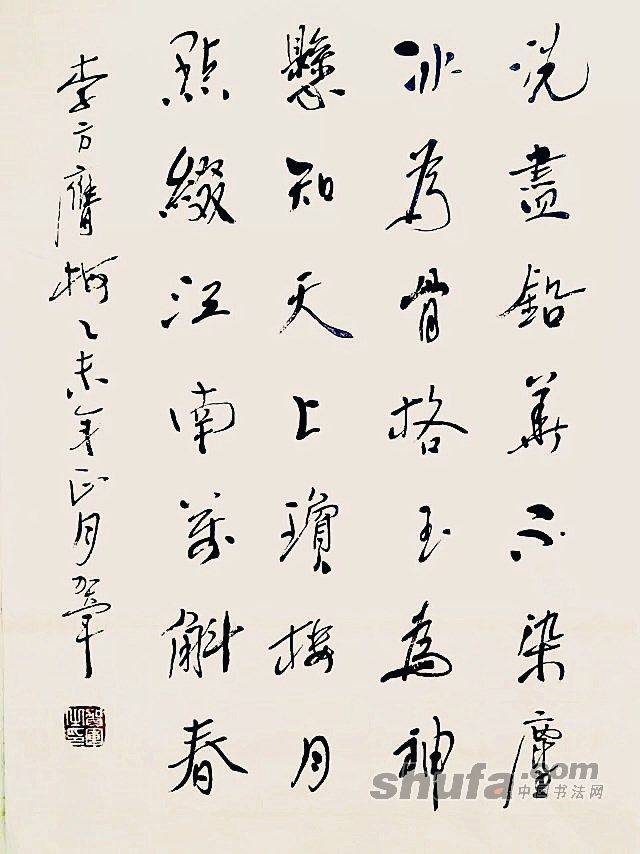 洗盡鉛華不染塵
冰為骨格玉為神
懸知天上瓊樓月
點綴江南萬斛春
李方膺梅乙未年正月
shufa.com
中国书法网